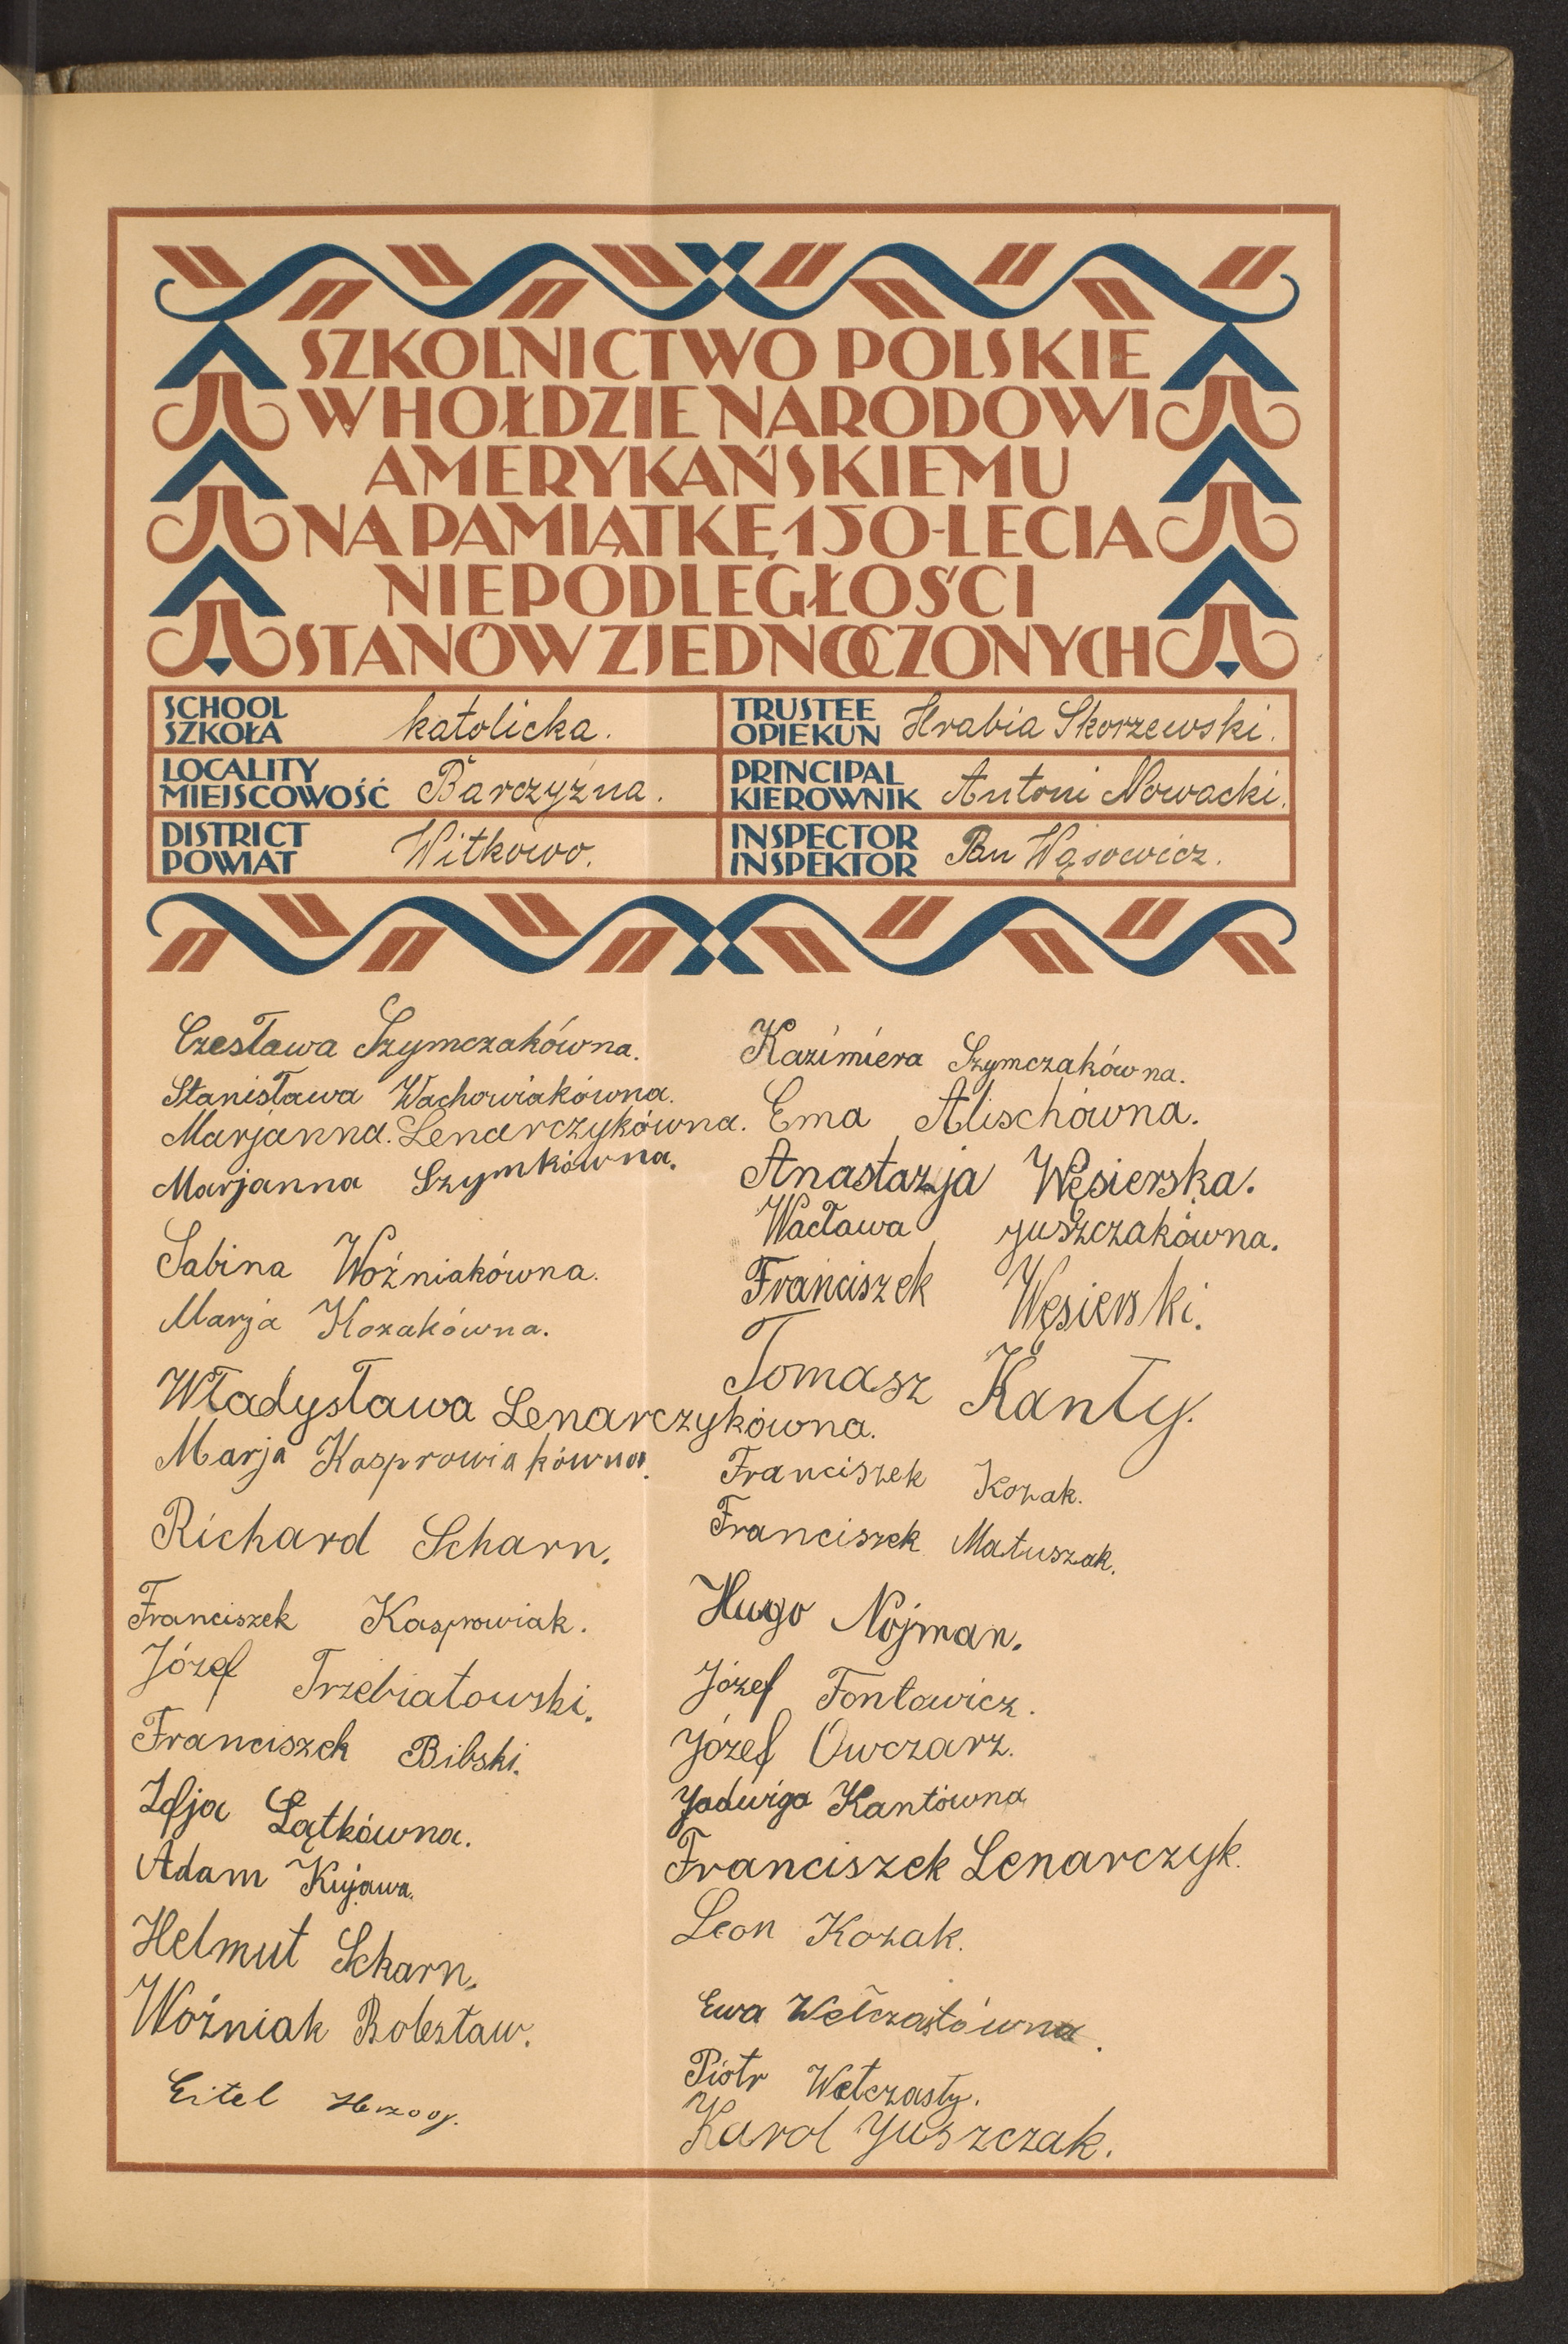 SZKOLNICTWO POLSKIE
W HOŁDZIE NARODOWI
AMERYKAŃSKIEMU
NA PAMIĄTKĘ 150-LECIA
NIEPODLEGŁOŚCI
STANÓW ZJEDNOCZONYCH
SCHOOL
SZKOŁA
katolicka.
TRUSTEE
OPIEKUN
Hrabia Skorzewski.
LOCALITY
MIEJSCOWOŚĆ
Barczyzna.
PRINCIPAL
KIEROWNIK
Antoni Nowacki.
DISTRICT
POWIAT
Witkowo.
INSPECTOR
INSPEKTOR
Pan Wąsowicz.
Czesława Szymczakówna.
Stanisława Wachowiakówna.
Marjanna. Lenarczykówna.
Marjanna Szymkówna.
Sabina Woźniakówna.
Marja Kozakówna.
Władysława Lenarczykówna.
Marja Kasprowiakówna.
Richard Scharn.
Franciszek Kasprowiak.
Józef Trzebiatowski.
Franciszek Bibski.
Zofja Łątkówna.
Adam Kujawa.
Helmut Scharn.
Woźniak Bolesław.
Eitel Herzog.
Kazimiera Szymczakówna.
Ema Alischówna.
Anastazja Węsierska.
Wacława Juszczakówna.
Franciszek Węsierski.
Tomasz Kanty.
Franciszek Kozak.
Franciszek Matuszak.
Hugo Nojman.
Józef Fontowicz.
Józef Owczarz.
Jadwiga Kantówna
Franciszek Lenarczyk.
Leon Kozak.
Ewa Wełczastówna.
Piotr Wełczasty.
Karol Juszczak.